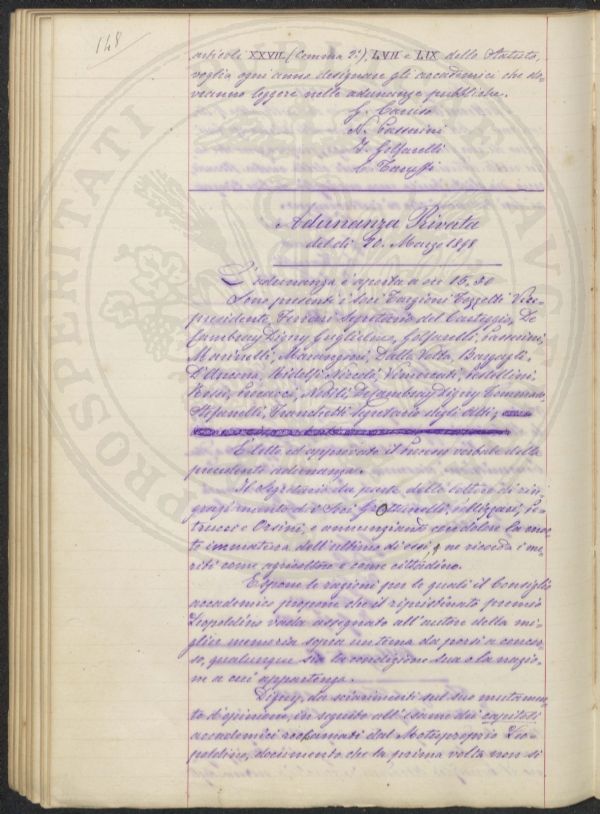 148
articoli XXVII (Comma 2º), LVII e LIX dello Statuto,
voglia ogni anno designare gli accademici che do=
vranno leggere nelle adunanze pubbliche.
G. Caruso
N. Passerini
F. Golfarelli
C. Taruffi
Adunanza Privata
del dì 20. Marzo 1898
L'adunanza è aperta a ore 15,50
Sono presenti i soci Targioni Tozzetti Vice=
presidente, Ferrari Segretario del Carteggio, De
Cambray Digny Guglielmo, Golfarelli, Passerini,
Marinelli, Marangoni, Dalla Volta, Bargagli,
D'Ancona, Ridolfi Niccolò, Vimercati, Pestellini,
Rossi, Nobili, De Cambray Digny Tommaso,
Stefanelli, Franchetti Segretario degli Atti,
È letto ed approvato il processo verbale della
precedente adunanza.
Il Segretario dà parte delle lettere di rin=
graziamento dei Soci e Orsini, e annunziando con dolore la mor=
te immatura dell'ultimo di essi, ne ricorda i me=
riti come agricoltore e come cittadino.
Espone le ragioni per le quali il Consiglio
accademico propone che il ripristinato premio
Leopoldino vada assegnato all'autore della mi=
glior memoria sopra un tema da porsi a concor=
so, qualunque sia la condizione sua o la nazio=
ne a cui appartenga.
Digny, dà schiarimenti sul suo mutamen=
to d'opinione, in seguito all'esame dei capitoli
accademici richiamati dal Motuproprio Leo=
poldino, documento che la prima volta non si